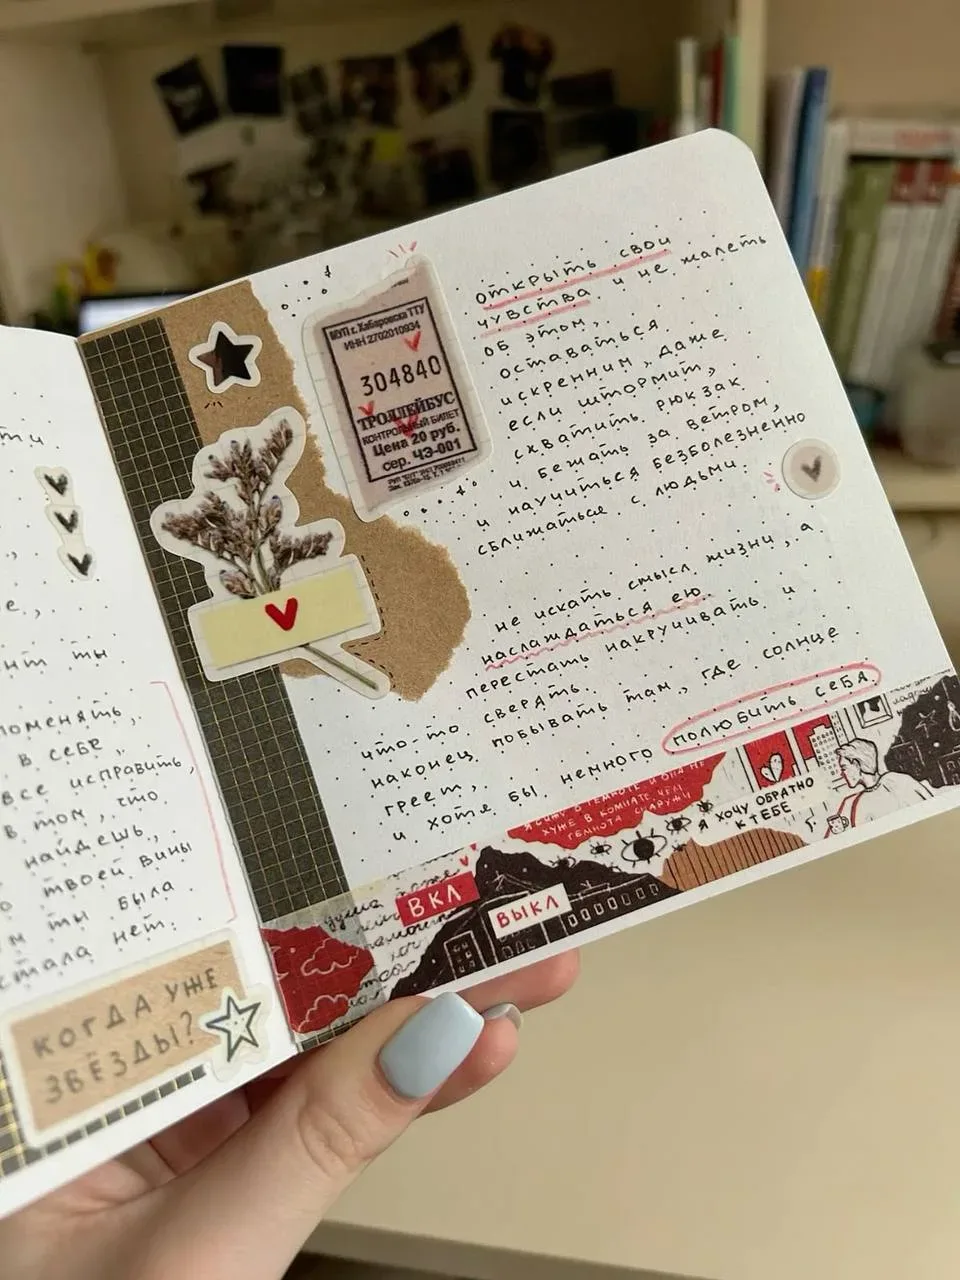 ти
е,
нт ты
поменять,
в себе,
все исправить,
в том, что
найдешь,
о твоей вины
м ты была
стала нет.
КОГДА УЖЕ
ЗВЁЗДЫ?
МУП г. Хабаровска ТТУ
ИНН 2702010934
304840
ТРОЛЛЕЙБУС
КОНТРОЛЬНЫЙ БИЛЕТ
Цена 20 руб.
сер. ЧЭ-001
открыть свои
чувства и не жалеть
об этом,
оставаться
искренним, даже
если штормит,
схватить рюкзак
и бежать за ветром,
и научиться безболезненно
сближаться с людьми.
не искать смысл жизни, а
наслаждаться ею.
перестать накручивать и
что-то сверять.
наконец побывать там, где солнце
греет,
и хотя бы немного полюбить себя.
Я СИЖУ В ТЕМНОТЕ. И ОНА НЕ
ХУЖЕ В КОМНАТЕ ЧЕМ
ТЕМНОТА СНАРУЖИ
Я ХОЧУ ОБРАТНО
К ТЕБЕ
ВКЛ
ВЫКЛ
душа